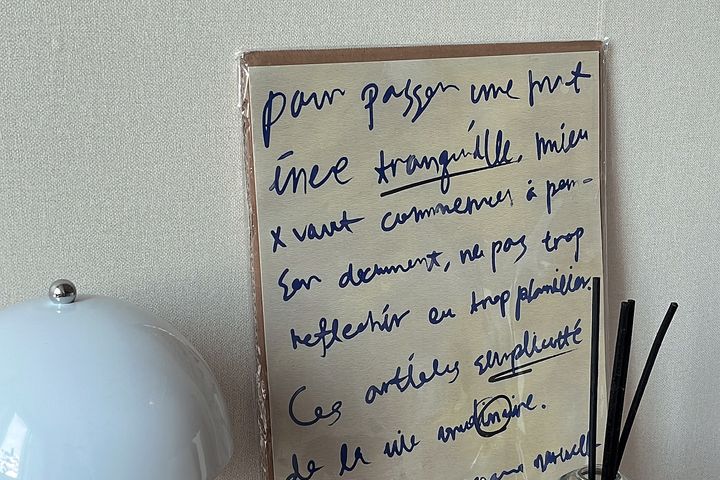 Pour passer une mat
inee tranquille, mieu
x vaut commencer à pen-
ser doucment, ne pas trop
reflechir ou trop planifier.
Ces articles simplicité
de la vie